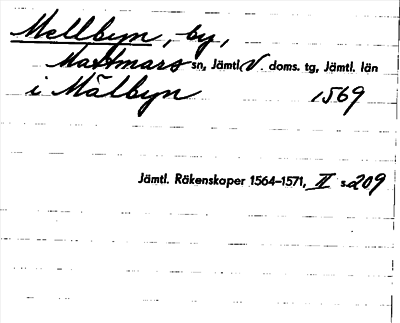 Mellbyn, by,
Mattmars sn, Jämtl. V. doms. tg, Jämtl. län
i Mälbyn 1569
Jämtl. Räkenskaper 1564–1571, II s. 209